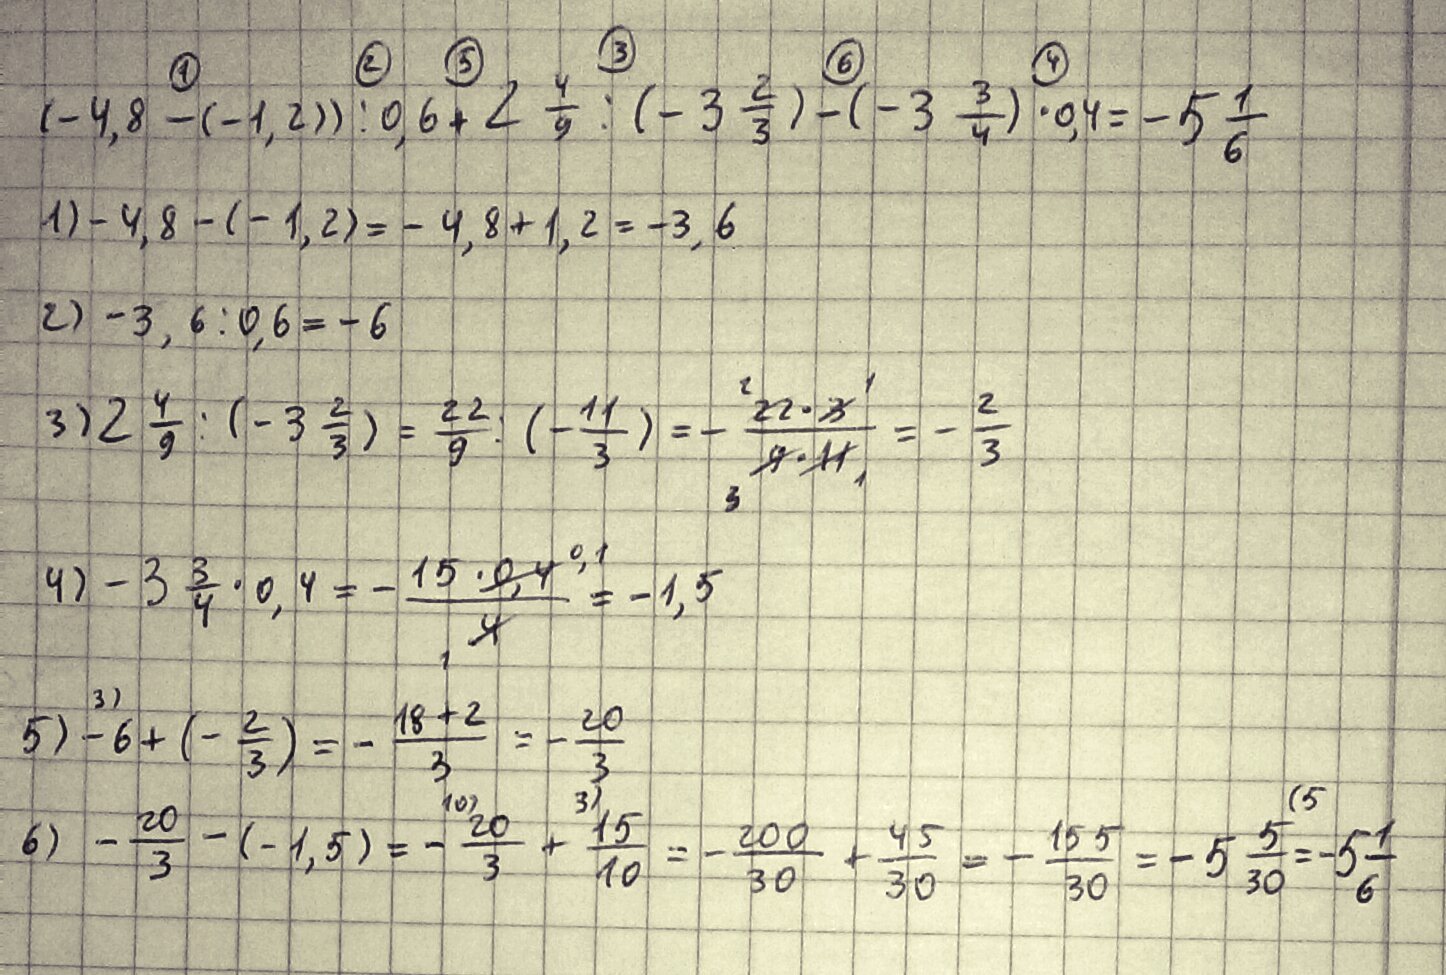 ① ② ⑤ ③ ⑥ ④
(-4,8 -(-1,2)) : 0,6 + 2 4/9 : (-3 2/3) - (-3 3/4) · 0,4 = -5 1/6
1) -4,8 - (-1,2) = -4,8 + 1,2 = -3,6
2) -3,6 : 0,6 = -6
3) 2 4/9 : (-3 2/3) = 22/9 : (-11/3) = - 2 22 · 3 1 / 3 9 · 11 1 = - 2/3
4) -3 3/4 · 0,4 = - 15 · 0,4 0,1 / 4 1 = -1,5
5) 3) -6 + (- 2/3) = - 18+2/3 = - 20/3
6) - 20/3 - (-1,5) = - 10) 20/3 + 3) 15/10 = - 200/30 + 45/30 = - 155/30 = -5 5/30 (5 = -5 1/6